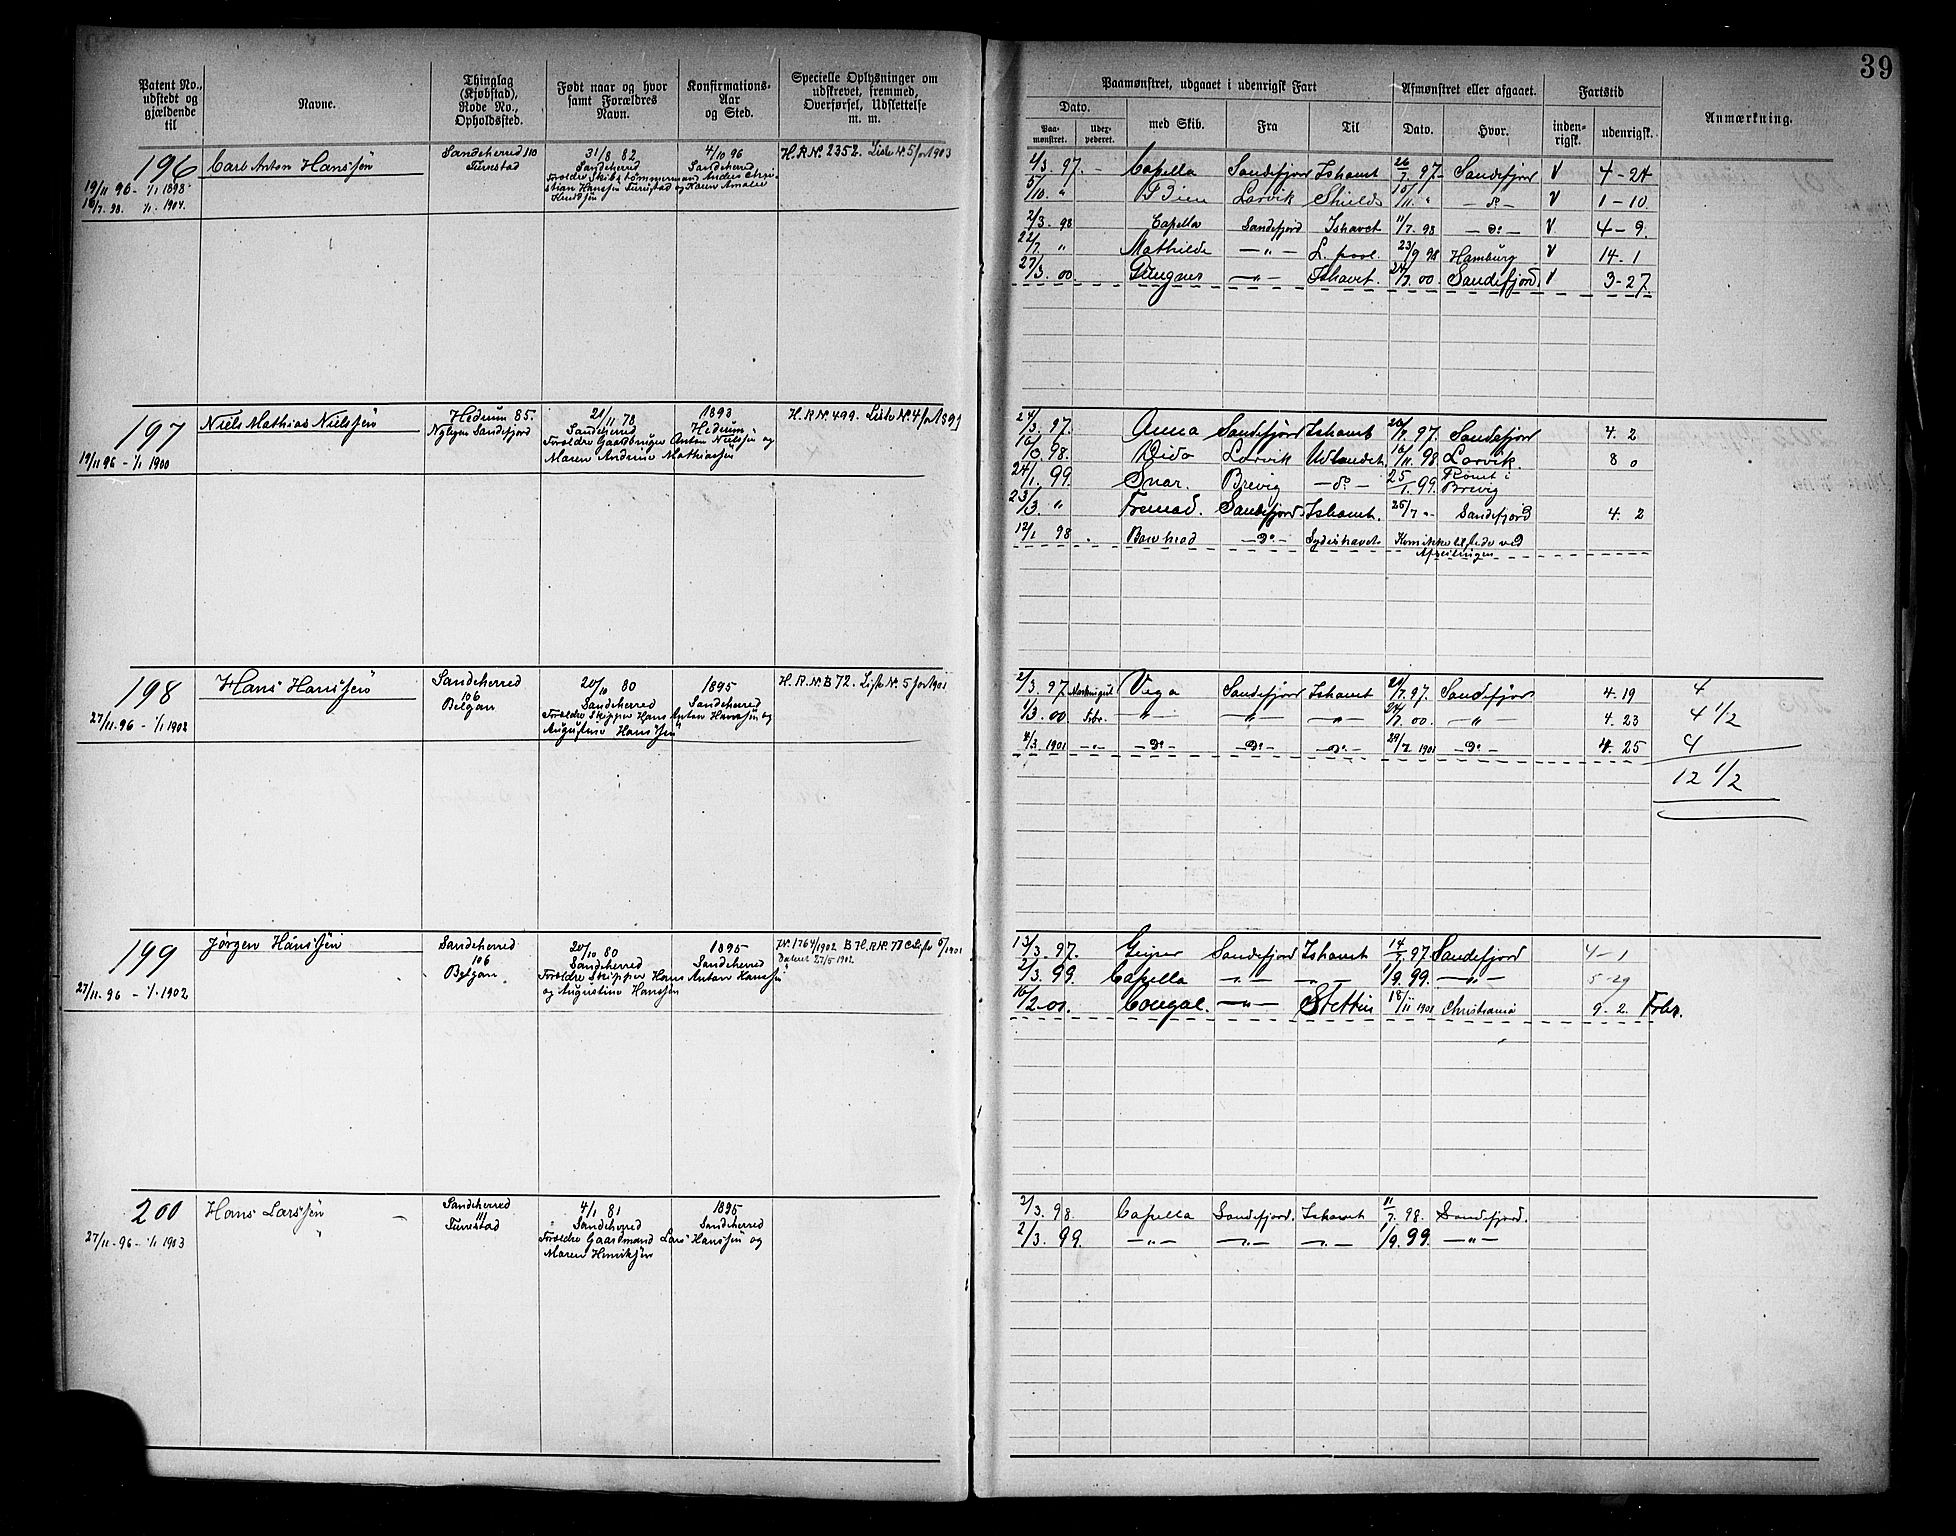 39
Patent No., udstedt og gjældende til
Navne.
Thinglag (Kjøbstad), Rode No., Opholdssted.
Født naar og hvor samt Forældres Navn.
Konfirmations-Aar og Sted.
Specielle Oplysninger om udskrevet, fremmed, Overførsel, Udslettelse m. m.
Paamønstret, udgaaet i udenrigsk Fart
Dato.
Paa-mønstret.
med Skib.
Fra
Til
Afmønstret eller afgaaet.
Dato.
Hvor.
Fartstid
inden-rigsk.
udenrigsk.
Anmærkning.
196
19/11 96 - 1/1 1898
16/7. 98. 1/1. 1904.
Carl Anton Hanssen
Sandeherred 110
Furustad
31/8 82
Sandeherred
4/10 96
Sandeherred
H.R.No. 2352. Liste No. 5 for 1903
2/3. 97. - Capella Sandefjord Ishavet 26/7. 97. Sandefjord V 4-24
5/10. " Larvik Shields 15/11. " - do - V 1-10
2/3. 98 Capella Sandefjord Ishavet 11/7. 98 - do - V 4-9.
22/7. " Mathilde - " - L. pool. 23/9 98 Hamburg V 14-1
27/3. 00. - " - Ishavet. 24/7. 00. Sandefjord. V 3-27.
197
19/11 96 - 1/1 1900
Niels Mathias Nielssen
Hedrum 85.
Sandefjord
21/11 78
Sandeherred
Forældre Gaardbruger Anton Nielssen og
Maren Andrine Mathiassen
1893
Hedrum
H.R.No. 499. Liste No. 4 for 1899
24/3. 97. Anna Sandefjord Ishavet 20/7. 97. Sandefjord 4. 2
98. Dido Larvik Udlandet 16/11. 98 Larvik. 8 0
24/1. 99. Snar. Brevig - do - 25/1. 99. Rømt i Brevig
23/3. " Fremad. Sandefjord Ishavet. 25/7 " Sandefjord 4. 2
12/1 98 Bowhead - Do - Sydishavet Kom ikke tilstede ved
Afreisningen
198
27/11. 96 - 1/1 1902
Hans Hanssen
Sandeherred
106
Bélgau
20/10 80
Sandeherred
Forældre Skipper Hans Anton Hanssen og
Augustine Hanssen
1895
Sandeherred
H.R.No. B 72. Liste No. 5 for 1901
2/3. 97 Vega Sandefjord Ishavet 21/7. 97. Sandefjord 4. 19 4
1/3. 00 - " - - " - - " - 24/7. 00. - " - 4. 23 4 1/2
4/3. 1901 - " - - Do - - Do - - Do - 29/7. 1901 - Do - 4. 25 4
12 1/2
199
27/11. 96 - 1/1. 1902
Jørgen Hanssen
Sandeherred
106
Bélgau
20/10 80
Sandeherred
Forældre Skipper Hans Anton Hanssen
og Augustine Hanssen
1895
Sandeherred
Dateret 27/5 1902.
13/3. 97. Geiser Sandefjord Ishavet 14/7. 97 Sandefjord 4-1
2/3. 99. Capella - " - - " - 1/9. 99. - " - 5-29
16/2. 01. Cougal. - " - Stettin 18/11 1901 Christiania 9. 2.
200
27/11-96 - 1/1 1903
Hans Larssen
Sandeherred
111
Furustad
4/1 81
Sandeherred
Forældre Gaardmand Lars Hanssen og
Maren Henriksen
1895
Sandeherred
2/3. 98. Capella Sandefjord. Ishavet 11/7. 98. Sandefjord.
2/3. 99. - " - - " - - " - 1/9. 99. - " -